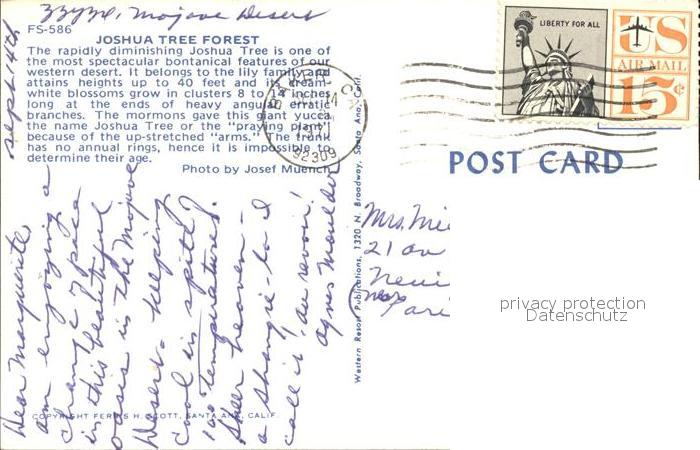 Zzyzx, Mojave Desert
FS-586
JOSHUA TREE FOREST
The rapidly diminishing Joshua Tree is one of
the most spectacular bontanical features of our
western desert. It belongs to the lily family and
attains heights up to 40 feet and its cream-
white blossoms grow in clusters 8 to 14 inches
long at the ends of heavy angular erratic
branches. The mormons gave this giant yucca
the name Joshua Tree or the "praying plant"
because of the up-stretched "arms." The trunk
has no annual rings, hence it is impossible to
determine their age.
Photo by Josef Muench
Sept. 14th
Dear Marguerite,
am enjoying a
change of pace
in this beautiful
oasis in the Mojave
Desert - keeping
cool in spite of
100° temperatures!
Sheer heaven -
a Shangri-la I
call it! au revoir!
Agnes Moulder
COPYRIGHT FERRIS H. SCOTT, SANTA ANA, CALIF.
Western Resort Publications, 1320 N. Broadway, Santa Ana, Calif.
BAKER
CA
92309
LIBERTY FOR ALL
US
AIR MAIL
15¢
POST CARD
Mrs.
21 av
Neui
near Pari
privacy protection
Datenschutz